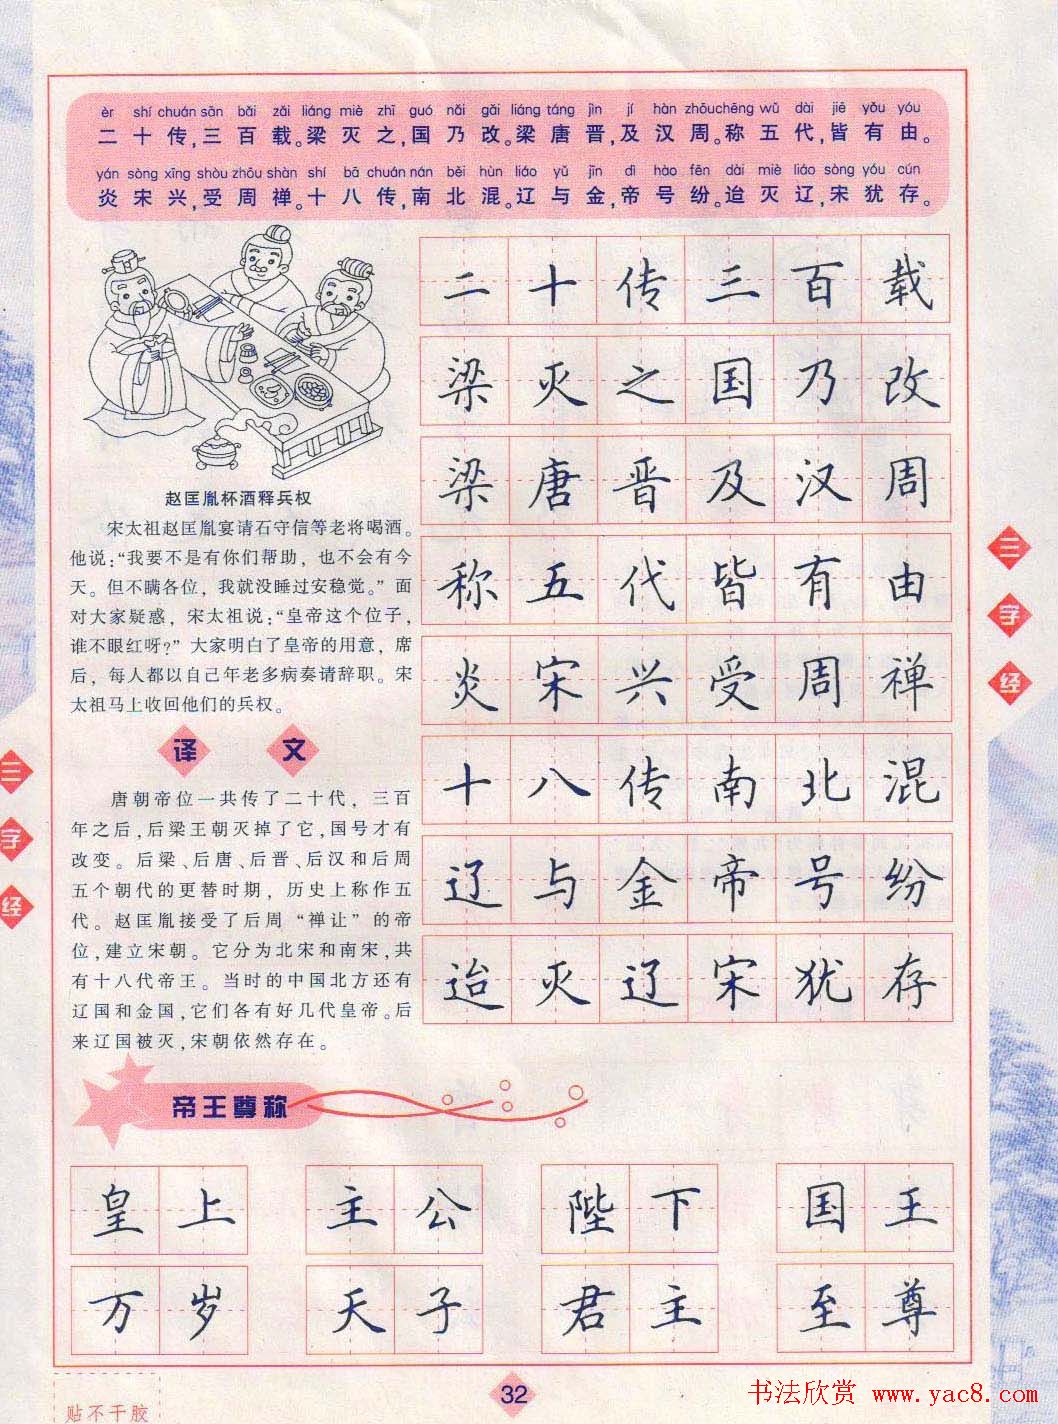 èr shí chuán sān bǎi zǎi liáng miè zhī guó nǎi gǎi liáng táng jìn jí hàn zhōu chēng wǔ dài jiē yǒu yóu
二十传,三百载。梁灭之,国乃改。梁唐晋,及汉周。称五代,皆有由。
yán sòng xīng shòu zhōu shàn shí bā chuán nán běi hùn liáo yǔ jīn dì hào fēn dài miè liáo sòng yóu cún
炎宋兴,受周禅。十八传,南北混。辽与金,帝号纷。迨灭辽,宋犹存。
赵匡胤杯酒释兵权
宋太祖赵匡胤宴请石守信等老将喝酒。
他说:“我要不是有你们帮助，也不会有今
天。但不瞒各位，我就没睡过安稳觉。”面
对大家疑惑，宋太祖说:“皇帝这个位子，
谁不眼红呀?”大家明白了皇帝的用意，席
后，每人都以自己年老多病奏请辞职。宋
太祖马上收回他们的兵权。
译文
唐朝帝位一共传了二十代，三百
年之后,后梁王朝灭掉了它,国号才有
改变。后梁、后唐、后晋、后汉和后周
五个朝代的更替时期，历史上称作五
代。赵匡胤接受了后周“禅让”的帝
位,建立宋朝。它分为北宋和南宋,共
有十八代帝王。当时的中国北方还有
辽国和金国,它们各有好几代皇帝。后
来辽国被灭,宋朝依然存在。
二十传三百载
梁灭之国乃改
梁唐晋及汉周
称五代皆有由
炎宋兴受周禅
十八传南北混
辽与金帝号纷
迨灭辽宋犹存
三字经
三字经
帝王尊称
皇上 主公 陛下 国王
万岁 天子 君主 至尊
32
贴不干胶
书法欣赏 www.yac8.com